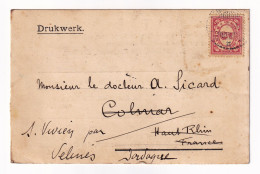 Drukwerk.
Monsieur le docteur A. Sicard
Colmar
Haut Rhin
France
S. Vivien par
Vélines Dordogne